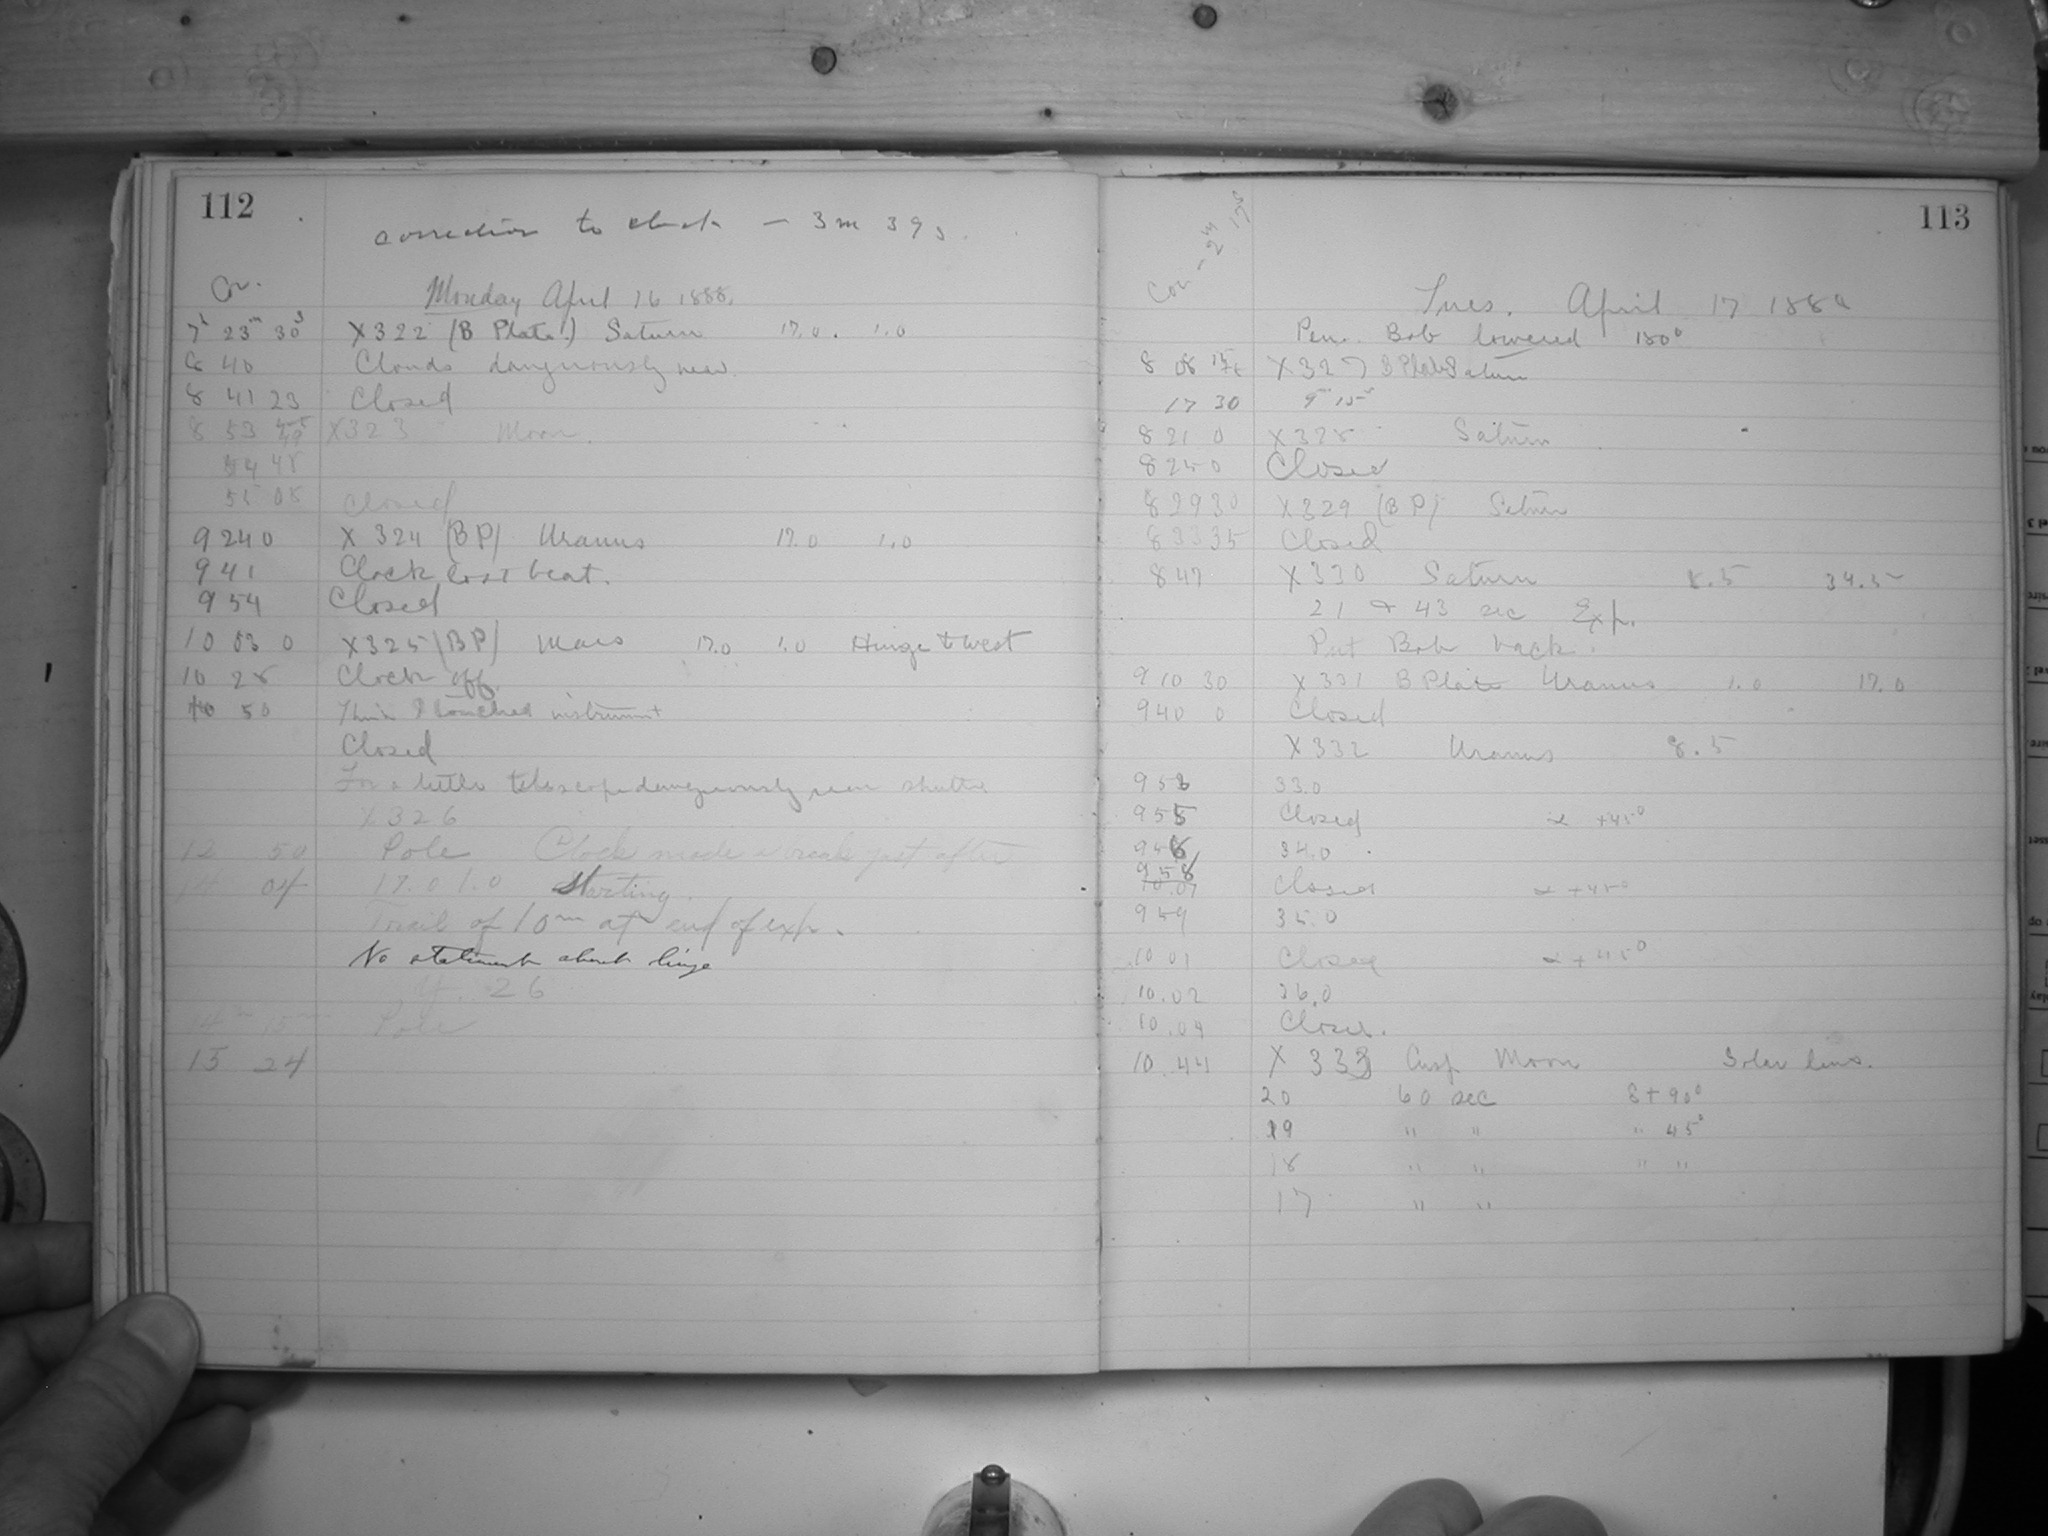 112
correction to clock — 3m 39s.
Cor.
Monday April 16 1888.
7h 23m 30s X322 (B Plate.) Saturn 17.0. 1.0
8 40 Clouds dangerously near.
8 41 23 Closed
8 53 X323 Moon.
54 48
55 08 Closed
9 24 0 X 324 (BP) Uranus 17.0 1.0
9 41 Clock lost beat.
9 54 Closed
10 03 0 X325 (BP) Mars 17.0 1.0 Hinge to West
10 28 Clock off
50 Think I touched instrument
Closed
For a little telescope dangerously near shutter
X326
12 50 Pole Clock made a break just after
14 04 17.0 1.0 Starting.
Trail of 10m at end of exp.
No statement about hinge
26
14h 15m Pole
15 24
113
Cor — 2m 17s
Tues. April 17 188
Pen. Bob lowered 180°
8 08 15 X327 B Plate Saturn
17 30 9m 15s
8 21 0 X328 Saturn
8 25 0 Closed
8 29 30 X329 (BP) Saturn
8 33 35 Closed
8 47 X330 Saturn 8.5 34.5
21 & 43 sec Exp.
Put Bob back.
9 10 30 X331 B Plate Uranus 1.0 17.0
9 40 0 Closed
X332 Uranus 8.5
9 53 33.0
9 55 Closed α +45°
9 34.0
9 58 Closed α +45°
10.07
9 59 35.0
10 01 Closed α +45°
10.02 36.0
10.04 Closed.
10.44 X 333 Cusp Moon Solar lens.
20 60 sec δ + 90°
19 " " " 45°
18 " " " "
17 " "